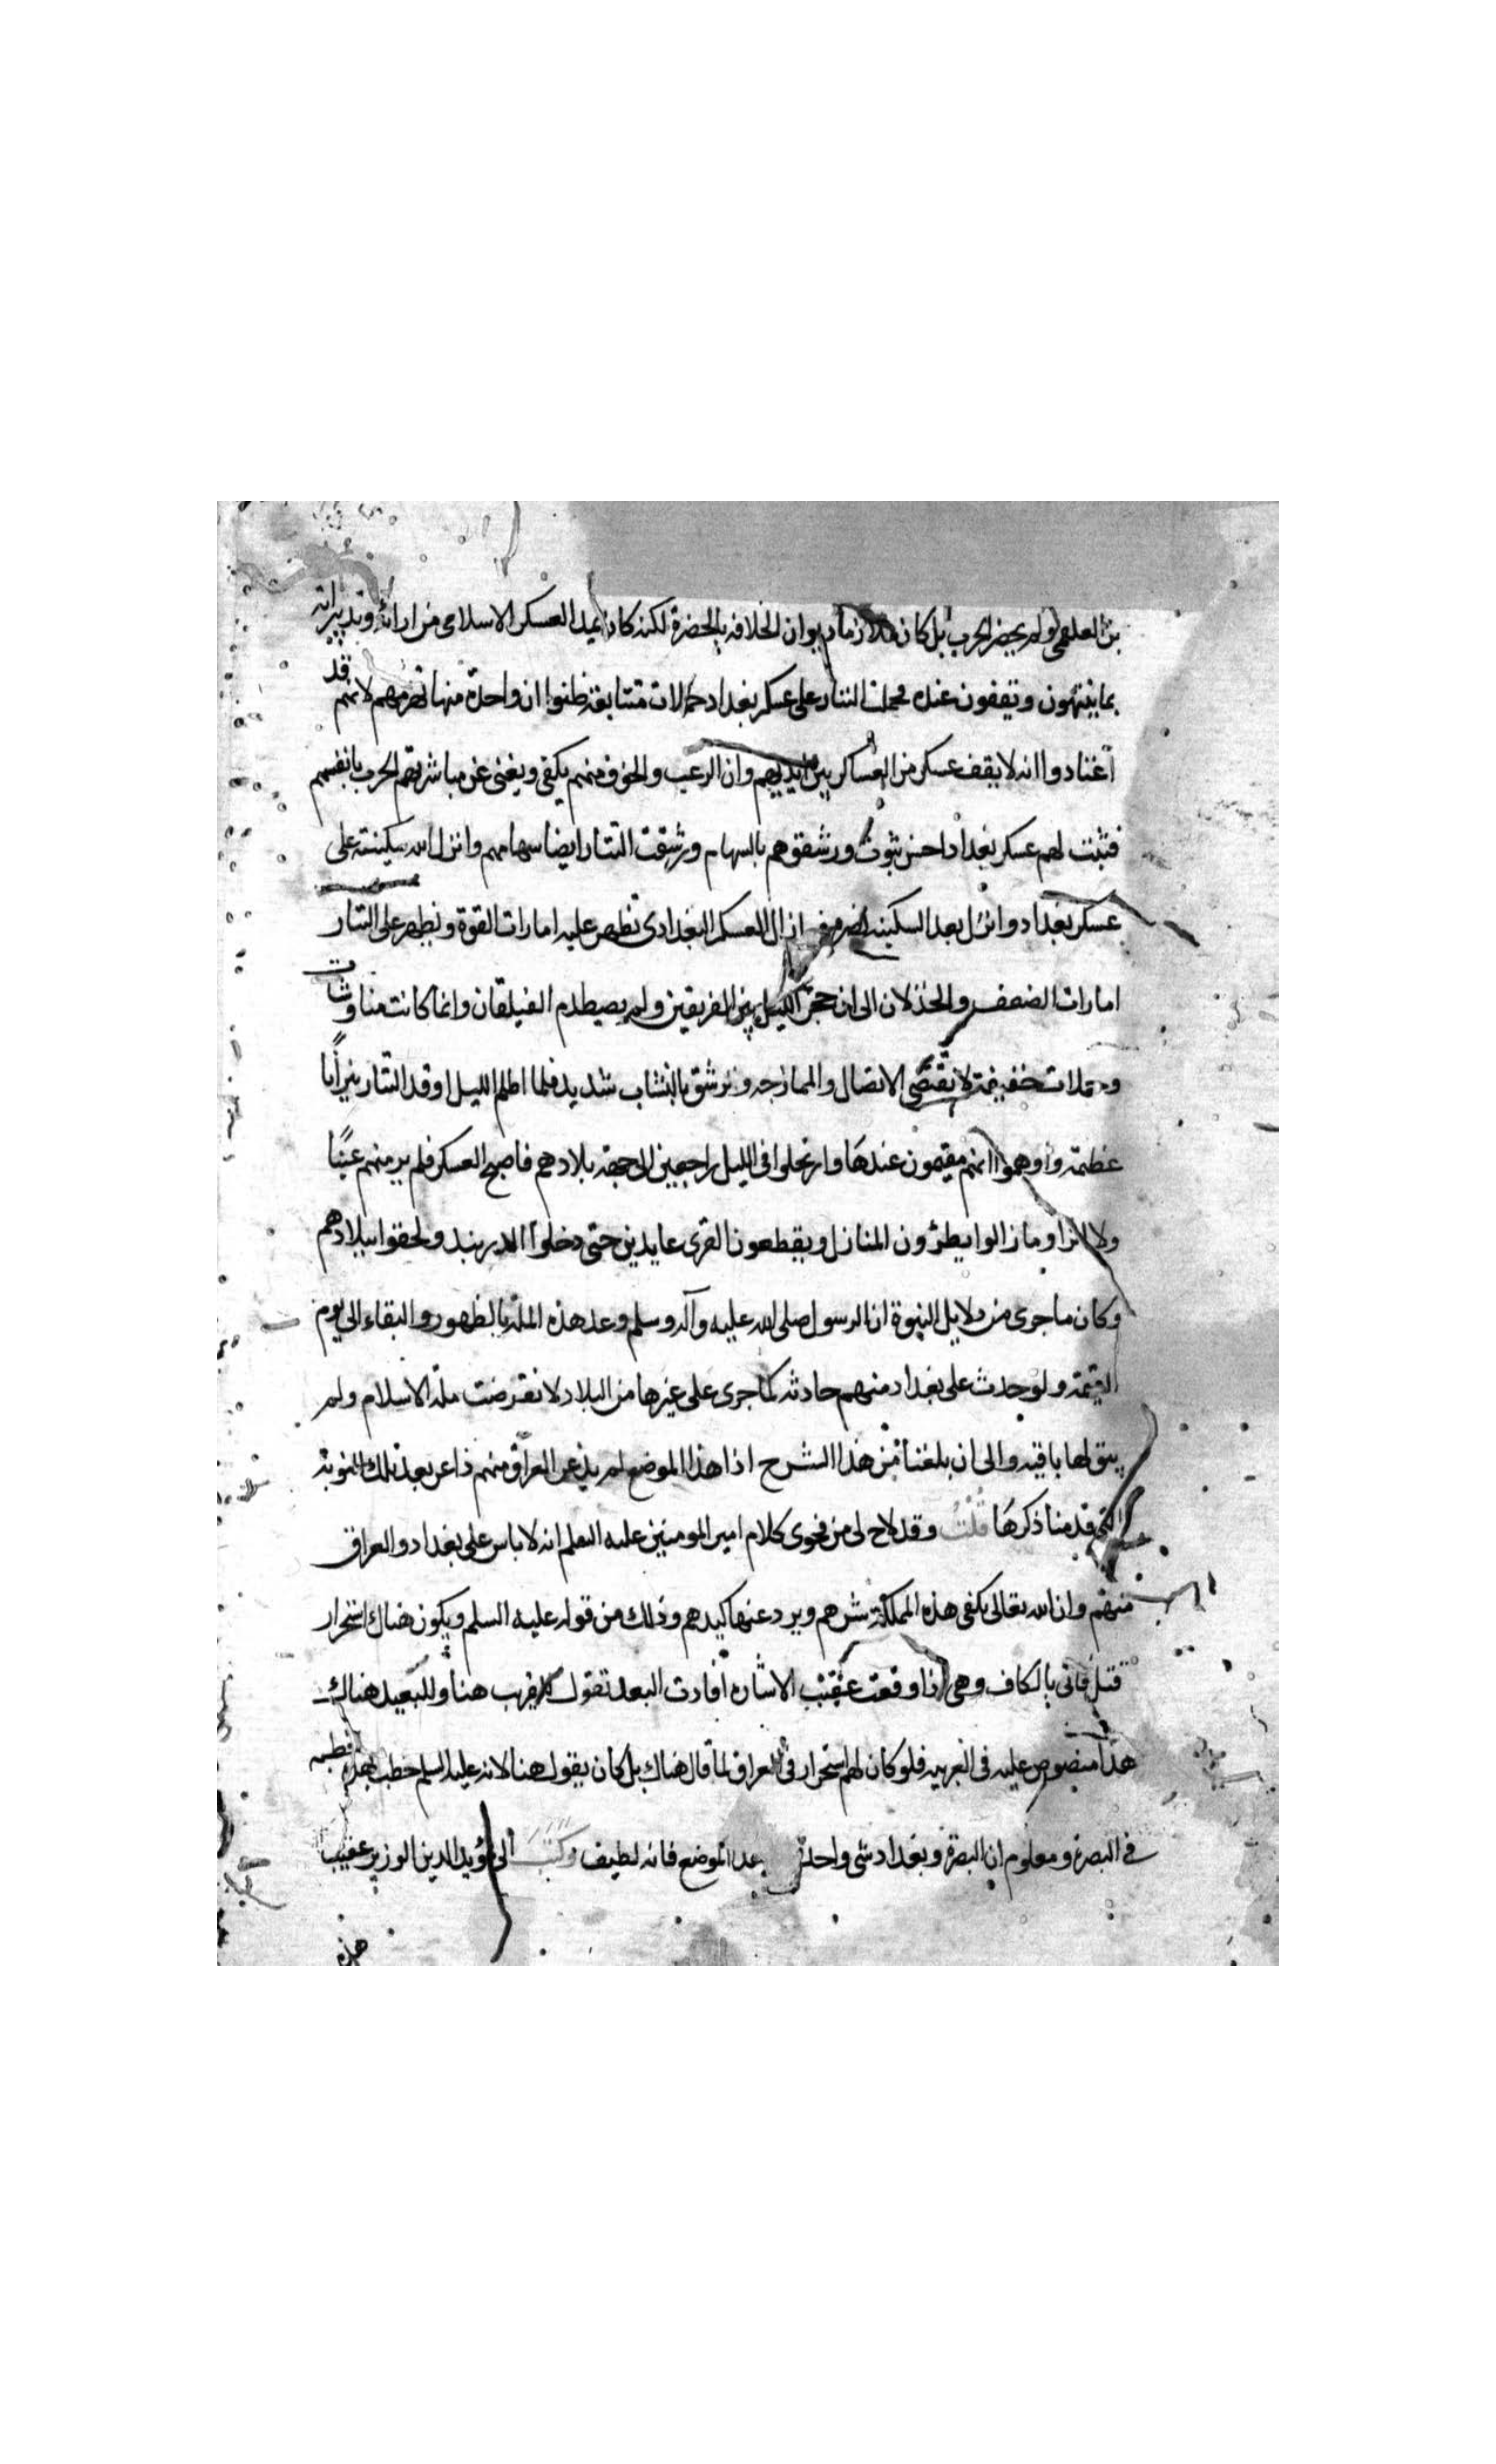 بن العلقمي ولم يحضر الحرب بل كان ملازما ديوان الخلافه بالحضرة لكنه كان يمد العسكر الاسلامى من ارائه وتدبيراته
بما ينتهون ويقفون عنده فحملت التتار على عسكر بغداد حملات متتابعة ظنوا ان واحدة منها تهزمهم لانهم قد
اعتادوا انه لا يقف عسكر من العساكر بين ايديهم وان الرعب والخوف منهم يكفى ويغنى عن مباشرتهم الحرب بانفسهم
فثبت لهم عسكر بغداد احسن ثبوت ورشقوهم بالسهام ورشقت التتار ايضا سهامهم وانزل الله سكينته على
عسكر بغداد وانزل بعد السكينه نصره فما زال العسكر البغدادى تظهر عليه امارات القوة وتظهر على التتار
امارات الضعف والخذلان الى ان حجز الليل بين الفريقين ولم يصطدم الفيلقان وانما كانت مناوشات
وحملات خفيفة لا تقتضى الاتصال والممازجه ورشق بالنشاب شديد فلما اظلم الليل اوقد التتار نيرانا
عظيمة واوهموا انهم مقيمون عندها وارتحلوا فى الليل راجعين الى جهة بلادهم فاصبح العسكر فلم ير منهم عينا
ولا اثرا وما زالوا يطوون المنازل ويقطعون القرى عايدين حتى دخلوا الدربند ولحقوا ببلادهم
وكان ما جرى من دلايل النبوة ان الرسول صلى الله عليه وآله وسلم وعد هذه الملة بالظهور والبقاء الى يوم
القيمة ولو حدث على بغداد منهم حادثه كما جرى على غيرها من البلاد لانقرضت ملة الاسلام ولم
يبق لها باقيه والى ان بلغنا من هذا الشرح اذا هذا الموضع لم يذعر العراق منهم ذاعر بعد تلك النوبة
التى قدمنا ذكرها قلت وقد لاح لى من فحوى كلام امير المومنين عليه السلم انه لا باس على بغداد والعراق
منهم وان الله تعالى يكفى هذه المملكة شرهم ويرد عنها كيدهم وذلك من قوله عليه السلم ويكون هناك استحرار
قتل فاتى بالكاف وهى اذا وقعت عقيب الاشاره افادت البعد تقول للقريب هنا وللبعيد هناك
هذا منصوص عليه فى العربيه فلو كان لهم استحرار فى العراق لما قال هناك بل كان يقول هنا لانه عليه السلم خطب بهذه الخطبة
فى البصرة ومعلوم ان البصرة وبغداد شى واحد هذا الموضع فانه لطيف وكتبت الى مؤيد الدين الوزير عقيب
هذه